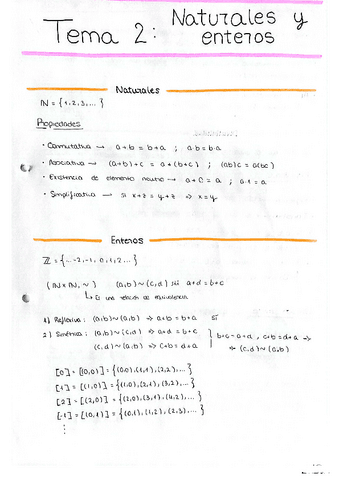 Tema 2: Naturales y enteros
Naturales
ℕ = {1, 2, 3, ... }
Propiedades
· Conmutativa → a+b = b+a ; a·b = b·a
· Asociativa → (a+b)+c = a+(b+c) ; (ab)c = a(bc)
· Existencia de elemento neutro → a+0 = a ; a·1 = a
· Simplificativa → si x+z = y+z ⇒ x=y
Enteros
ℤ = {... -2, -1, 0, 1, 2, ... }
(ℕ×ℕ, ~) (a,b)~(c,d) sii a+d = b+c
↳ Es una relación de equivalencia
1) Reflexiva: (a,b)~(a,b) ⇒ a+b = b+a sí
2) Simétrica: (a,b)~(c,d) ⇒ a+d = b+c
(c,d)~(a,b) ⇒ c+b = d+a
} b+c = a+d, c+b = d+a ⇒
⇒ (c,d)~(a,b)
[0] = [(0,0)] = {(0,0), (1,1), (2,2), ... }
[1] = [(1,0)] = {(1,0), (2,1), (3,2), ... }
[2] = [(2,0)] = {(2,0), (3,1), (4,2), ... }
[-1] = [(0,1)] = {(0,1), (1,2), (2,3), ... }
⋮